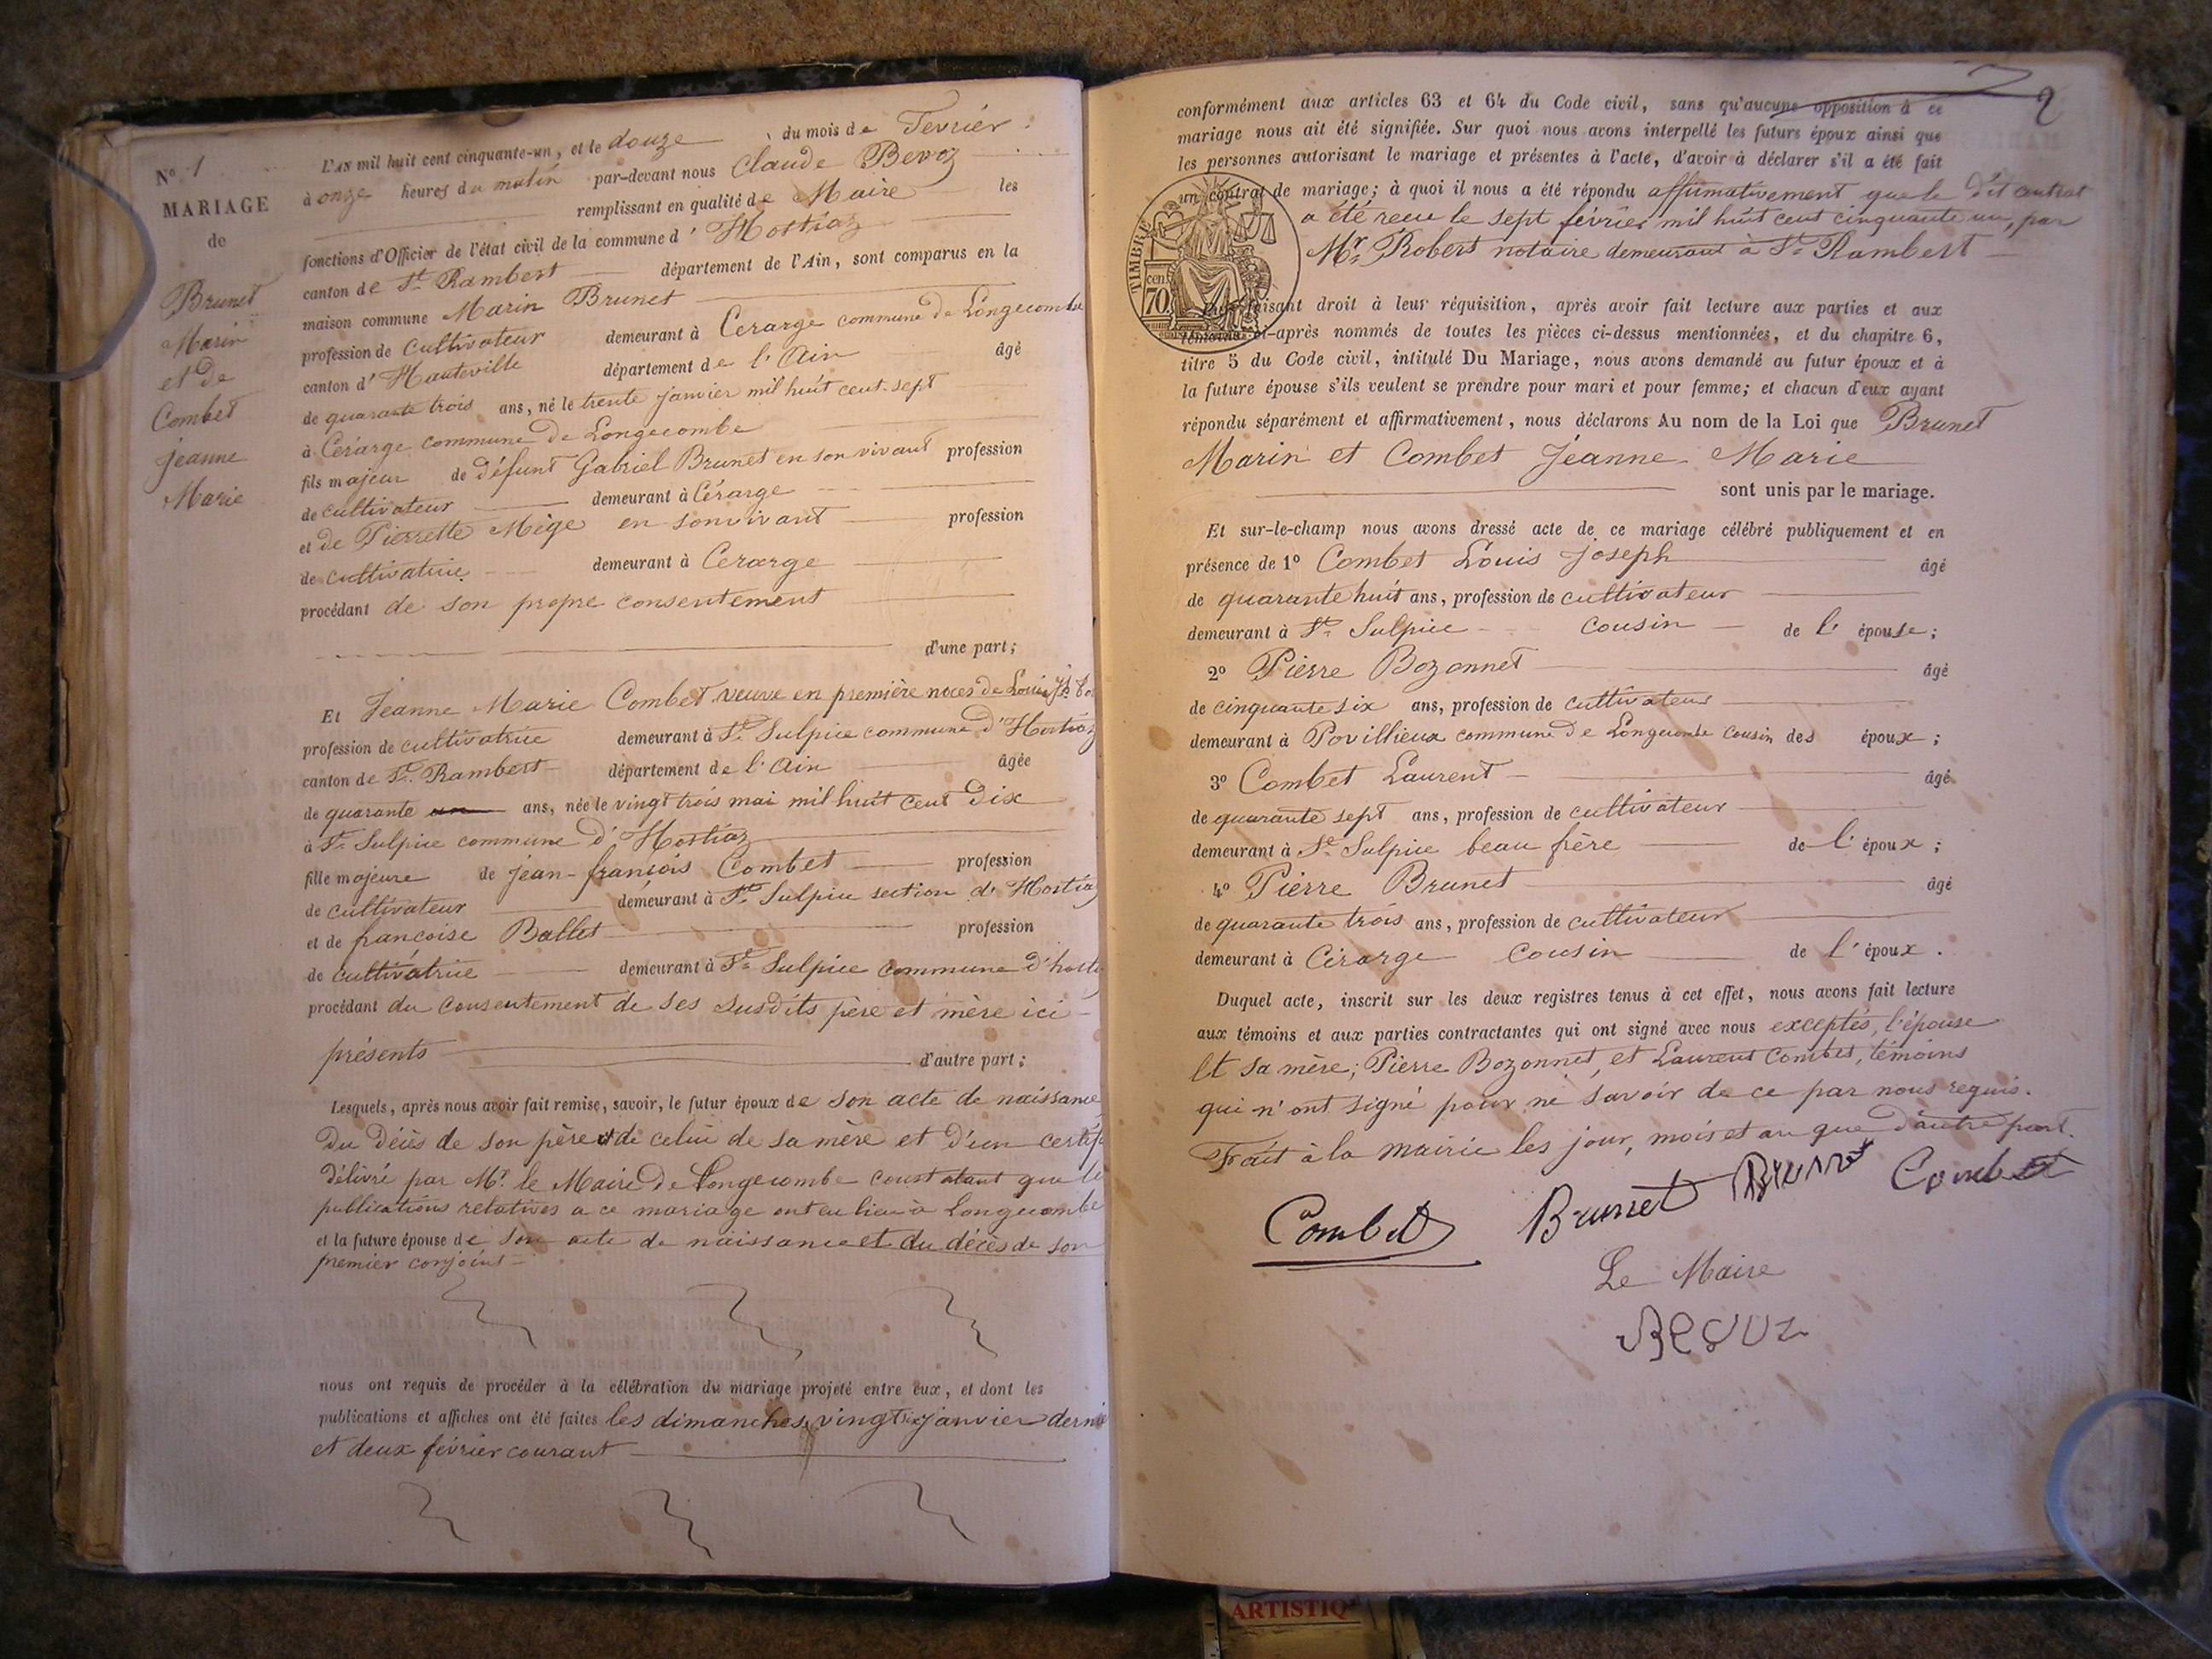 N° 1
MARIAGE
de
Brunet
Marin
et de
Combet
Jeanne
Marie
L'AN mil huit cent cinquante-un, et le douze du mois de Fevrier
à onze heures du matin par-devant nous Claude Bevoz
remplissant en qualité de Maire les
fonctions d'Officier de l'état civil de la commune d' Hostiaz
canton de St Rambert département de l'Ain, sont comparus en la
maison commune Marin Brunet
profession de cultivateur demeurant à Cerarge commune de Longecombe
canton d' Hauteville département de l'Ain âgé
de quarante trois ans, né le trente janvier mil huit cent sept
à Cérarge commune de Longecombe
fils majeur de défunt Gabriel Brunet en son vivant profession
de cultivateur demeurant à Cérarge
et de Pierrette Mège en son vivant profession
de cultivatrice demeurant à Cerarge
procédant de son propre consentement
d'une part;
Et Jeanne Marie Combet veuve en première noces de Louis Jh
profession de cultivatrice demeurant à St Sulpice commune d'Hostiaz
canton de St. Rambert département de l'Ain âgée
de quarante ans, née le vingt trois mai mil huit cent dix
à St Sulpice commune d'Hostiaz
fille majeure de jean-françois Combet profession
de cultivateur demeurant à St Sulpice section d'Hostiaz
et de françoise Ballet profession
de cultivatrice demeurant à St Sulpice commune d'
procédant du consentement de ses susdits père et mère ici
présents d'autre part;
Lesquels, après nous avoir fait remise, savoir, le futur époux de son acte de naissance
du décès de son père et de celui de sa mère et d'un
délivré par Mr. le Maire de Longecombe constatant que
publications relatives a ce mariage ont eu lieu à Longecombe
et la future épouse de son acte de naissance et du décès de son
premier conjoint
nous ont requis de procéder à la célébration du mariage projeté entre eux, et dont les
publications et affiches ont été faites les dimanches vingt six janvier
et deux février courant
2
conformément aux articles 63 et 64 du Code civil, sans qu'aucune opposition à ce
mariage nous ait été signifiée. Sur quoi nous avons interpellé les futurs époux ainsi que
les personnes autorisant le mariage et présentes à l'acte, d'avoir à déclarer s'il a été fait
un contrat de mariage; à quoi il nous a été répondu affirmativement que le dit contrat
a été reçu le sept février mil huit cent cinquante un, par
Mr Robert notaire demeurant à St Rambert
TIMBRE
70 cen
faisant droit à leur réquisition, après avoir fait lecture aux parties et aux
témoins ci-après nommés de toutes les pièces ci-dessus mentionnées, et du chapitre 6,
titre 5 du Code civil, intitulé Du Mariage, nous avons demandé au futur époux et à
la future épouse s'ils veulent se prendre pour mari et pour femme; et chacun d'eux ayant
répondu séparément et affirmativement, nous déclarons Au nom de la Loi que Brunet
Marin et Combet Jeanne Marie
sont unis par le mariage.
Et sur-le-champ nous avons dressé acte de ce mariage célébré publiquement et en
présence de 1° Combet Louis joseph âgé
de quarante huit ans, profession de cultivateur
demeurant à St Sulpice cousin de l' épouse;
2° Pierre Bozonnet âgé
de cinquante six ans, profession de cultivateur
demeurant à Povillieux commune de Longecombe cousin des époux;
3° Combet Laurent âgé
de quarante sept ans, profession de cultivateur
demeurant à St Sulpice beau frère de l' époux;
4° Pierre Brunet âgé
de quarante trois ans, profession de cultivateur
demeurant à Cérarge cousin de l' époux.
Duquel acte, inscrit sur les deux registres tenus à cet effet, nous avons fait lecture
aux témoins et aux parties contractantes qui ont signé avec nous exceptés, l'épouse
et sa mère; Pierre Bozonnet, et Laurent Combet, témoins
qui n'ont signé pour ne savoir de ce par nous requis.
Fait à la mairie les jour, mois et an que d'autre part.
Combet Brunet Brunet Combet
Le Maire
Bevoz
ARTISTIQ